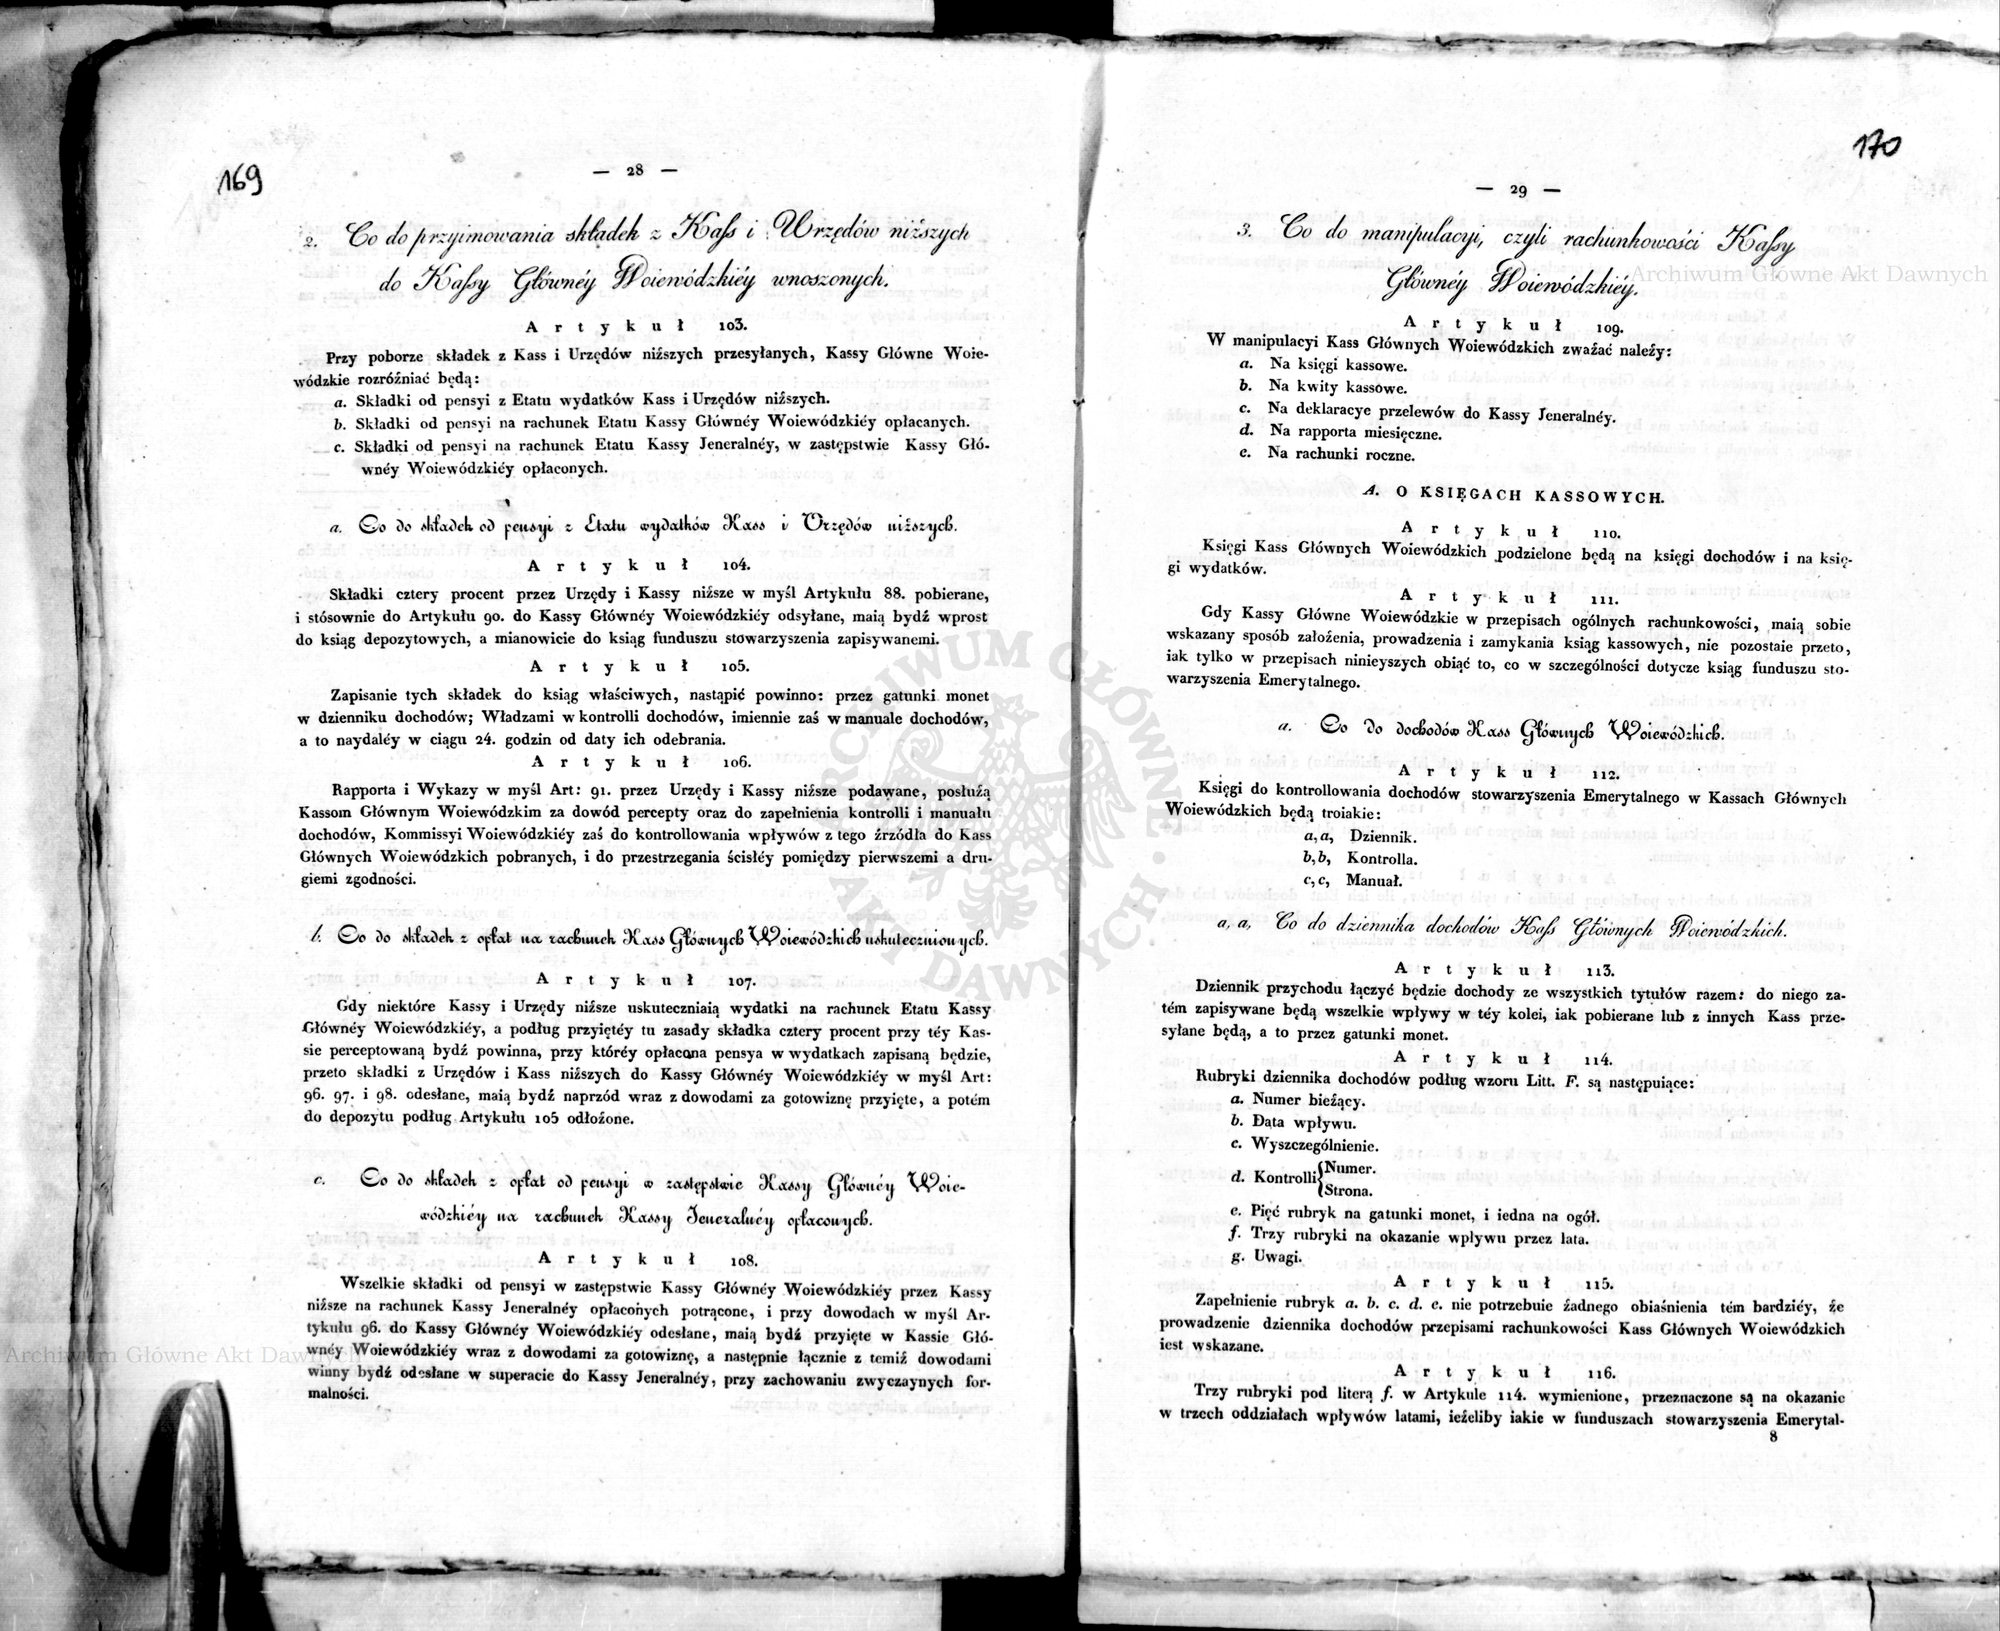 169
— 28 —
2. Co do przyimowania składek z Kass i Urzędów niższych
do Kassy Głównéy Woiewódzkiéy wnoszonych.
Artykuł 103.
Przy poborze składek z Kass i Urzędów niższych przesyłanych, Kassy Główne Woie-
wódzkie rozróźniać będą:
a. Składki od pensyi z Etatu wydatków Kass i Urzędów niższych.
b. Składki od pensyi na rachunek Etatu Kassy Główney Woiewódzkiéy opłacanych.
c. Składki od pensyi na rachunek Etatu Kassy Jeneralnéy, w zastępstwie Kassy Głó-
wnéy Woiewódzkiéy opłaconych.
a. Co do składek od pensyi z Etatu wydatków Kass i Urzędów niższych.
Artykuł 104.
Składki cztery procent przez Urzędy i Kassy niższe w myśl Artykułu 88. pobierane,
i stósownie do Artykułu 90. do Kassy Główney Woiewódzkiéy odsyłane, maią bydź wprost
do ksiąg depozytowych, a mianowicie do ksiąg funduszu stowarzyszenia zapisywanemi.
Artykuł 105.
Zapisanie tych składek do ksiąg właściwych, nastąpić powinno: przez gatunki monet
w dzienniku dochodów; Władzami w kontrolli dochodów, imiennie zaś w manuale dochodów,
a to naydaléy w ciągu 24. godzin od daty ich odebrania.
Artykuł 106.
Rapporta i Wykazy w myśl Art: 91. przez Urzędy i Kassy niższe podawane, posłużą
Kassom Głównym Woiewódzkim za dowód percepty oraz do zapełnienia kontrolli i manuału
dochodów, Kommissyi Woiewódzkiéy zaś do kontrollowania wpływów z tego źrzódła do Kass
Głównych Woiewódzkich pobranych, i do przestrzegania ścisłéy pomiędzy pierwszemi a dru-
giemi zgodności.
b. Co do składek z opłat na rachunek Kass Głównych Woiewódzkich uskutecznionych.
Artykuł 107.
Gdy niektóre Kassy i Urzędy niższe uskuteczniaią wydatki na rachunek Etatu Kassy
Główney Woiewódzkiéy, a podług przyiętéy tu zasady składka cztery procent przy téy Kas-
sie perceptowaną bydź powinna, przy któréy opłacona pensya w wydatkach zapisaną będzie,
przeto składki z Urzędów i Kass niższych do Kassy Główney Woiewódzkiéy w myśl Art:
96. 97. i 98. odesłane, maią bydź naprzód wraz z dowodami za gotowiznę przyięte, a potém
do depozytu podług Artykułu 105 odłożone.
c. Co do składek z opłat od pensyi w zastępstwie Kassy Główney Woie-
wódzkiéy na rachunek Kassy Jeneralnéy opłaconych.
Artykuł 108.
Wszelkie składki od pensyi w zastępstwie Kassy Główney Woiewódzkiéy przez Kassy
niższe na rachunek Kassy Jeneralnéy opłaconych potrącone, i przy dowodach w myśl Ar-
tykułu 96. do Kassy Główney Woiewódzkiéy odesłane, maią bydź przyięte w Kassie Głó-
wnéy Woiewódzkiéy wraz z dowodami za gotowiznę, a następnie łącznie z temiż dowodami
winny bydź odesłane w superacie do Kassy Jeneralnéy, przy zachowaniu zwyczaynych for-
malności.
170
— 29 —
3. Co do manipulacyi, czyli rachunkowości Kassy
Główney Woiewódzkiéy.
Artykuł 109.
W manipulacyi Kass Głównych Woiewódzkich zważać należy:
a. Na księgi kassowe.
b. Na kwity kassowe.
c. Na deklaracye przelewów do Kassy Jeneralnéy.
d. Na rapporta miesięczne.
e. Na rachunki roczne.
A. O KSIĘGACH KASSOWYCH.
Artykuł 110.
Księgi Kass Głównych Woiewódzkich podzielone będą na księgi dochodów i na księ-
gi wydatków.
Artykuł 111.
Gdy Kassy Główne Woiewódzkie w przepisach ogólnych rachunkowości, maią sobie
wskazany sposób założenia, prowadzenia i zamykania ksiąg kassowych, nie pozostaie przeto,
iak tylko w przepisach ninieyszych obiąć to, co w szczególności dotycze ksiąg funduszu sto-
warzyszenia Emerytalnego.
a. Co do dochodów Kass Głównych Woiewódzkich.
Artykuł 112.
Księgi do kontrollowania dochodów stowarzyszenia Emerytalnego w Kassach Głównych
Woiewódzkich będą troiakie:
a, a, Dziennik.
b, b, Kontrolla.
c, c, Manuał.
a, a, Co do dziennika dochodów Kass Głównych Woiewódzkich.
Artykuł 113.
Dziennik przychodu łączyć będzie dochody ze wszystkich tytułów razem: do niego za-
tém zapisywane będą wszelkie wpływy w téy kolei, iak pobierane lub z innych Kass prze-
syłane będą, a to przez gatunki monet.
Artykuł 114.
Rubryki dziennika dochodów podług wzoru Litt. F. są następuiące:
a. Numer bieżący.
b. Data wpływu.
c. Wyszczególnienie.
d. Kontrolli { Numer.
Strona.
e. Pięć rubryk na gatunki monet, i iedna na ogół.
f. Trzy rubryki na okazanie wpływu przez lata.
g. Uwagi.
Artykuł 115.
Zapełnienie rubryk a. b. c. d. e. nie potrzebuie żadnego obiaśnienia tém bardziéy, że
prowadzenie dziennika dochodów przepisami rachunkowości Kass Głównych Woiewódzkich
iest wskazane.
Artykuł 116.
Trzy rubryki pod literą f. w Artykule 114. wymienione, przeznaczone są na okazanie
w trzech oddziałach wpływów latami, ieżeliby iakie w funduszach stowarzyszenia Emerytal-
8
Archiwum Główne Akt Dawnych
Archiwum Główne Akt Dawnych
ARCHIWUM GŁÓWNE · AKT DAWNYCH ·